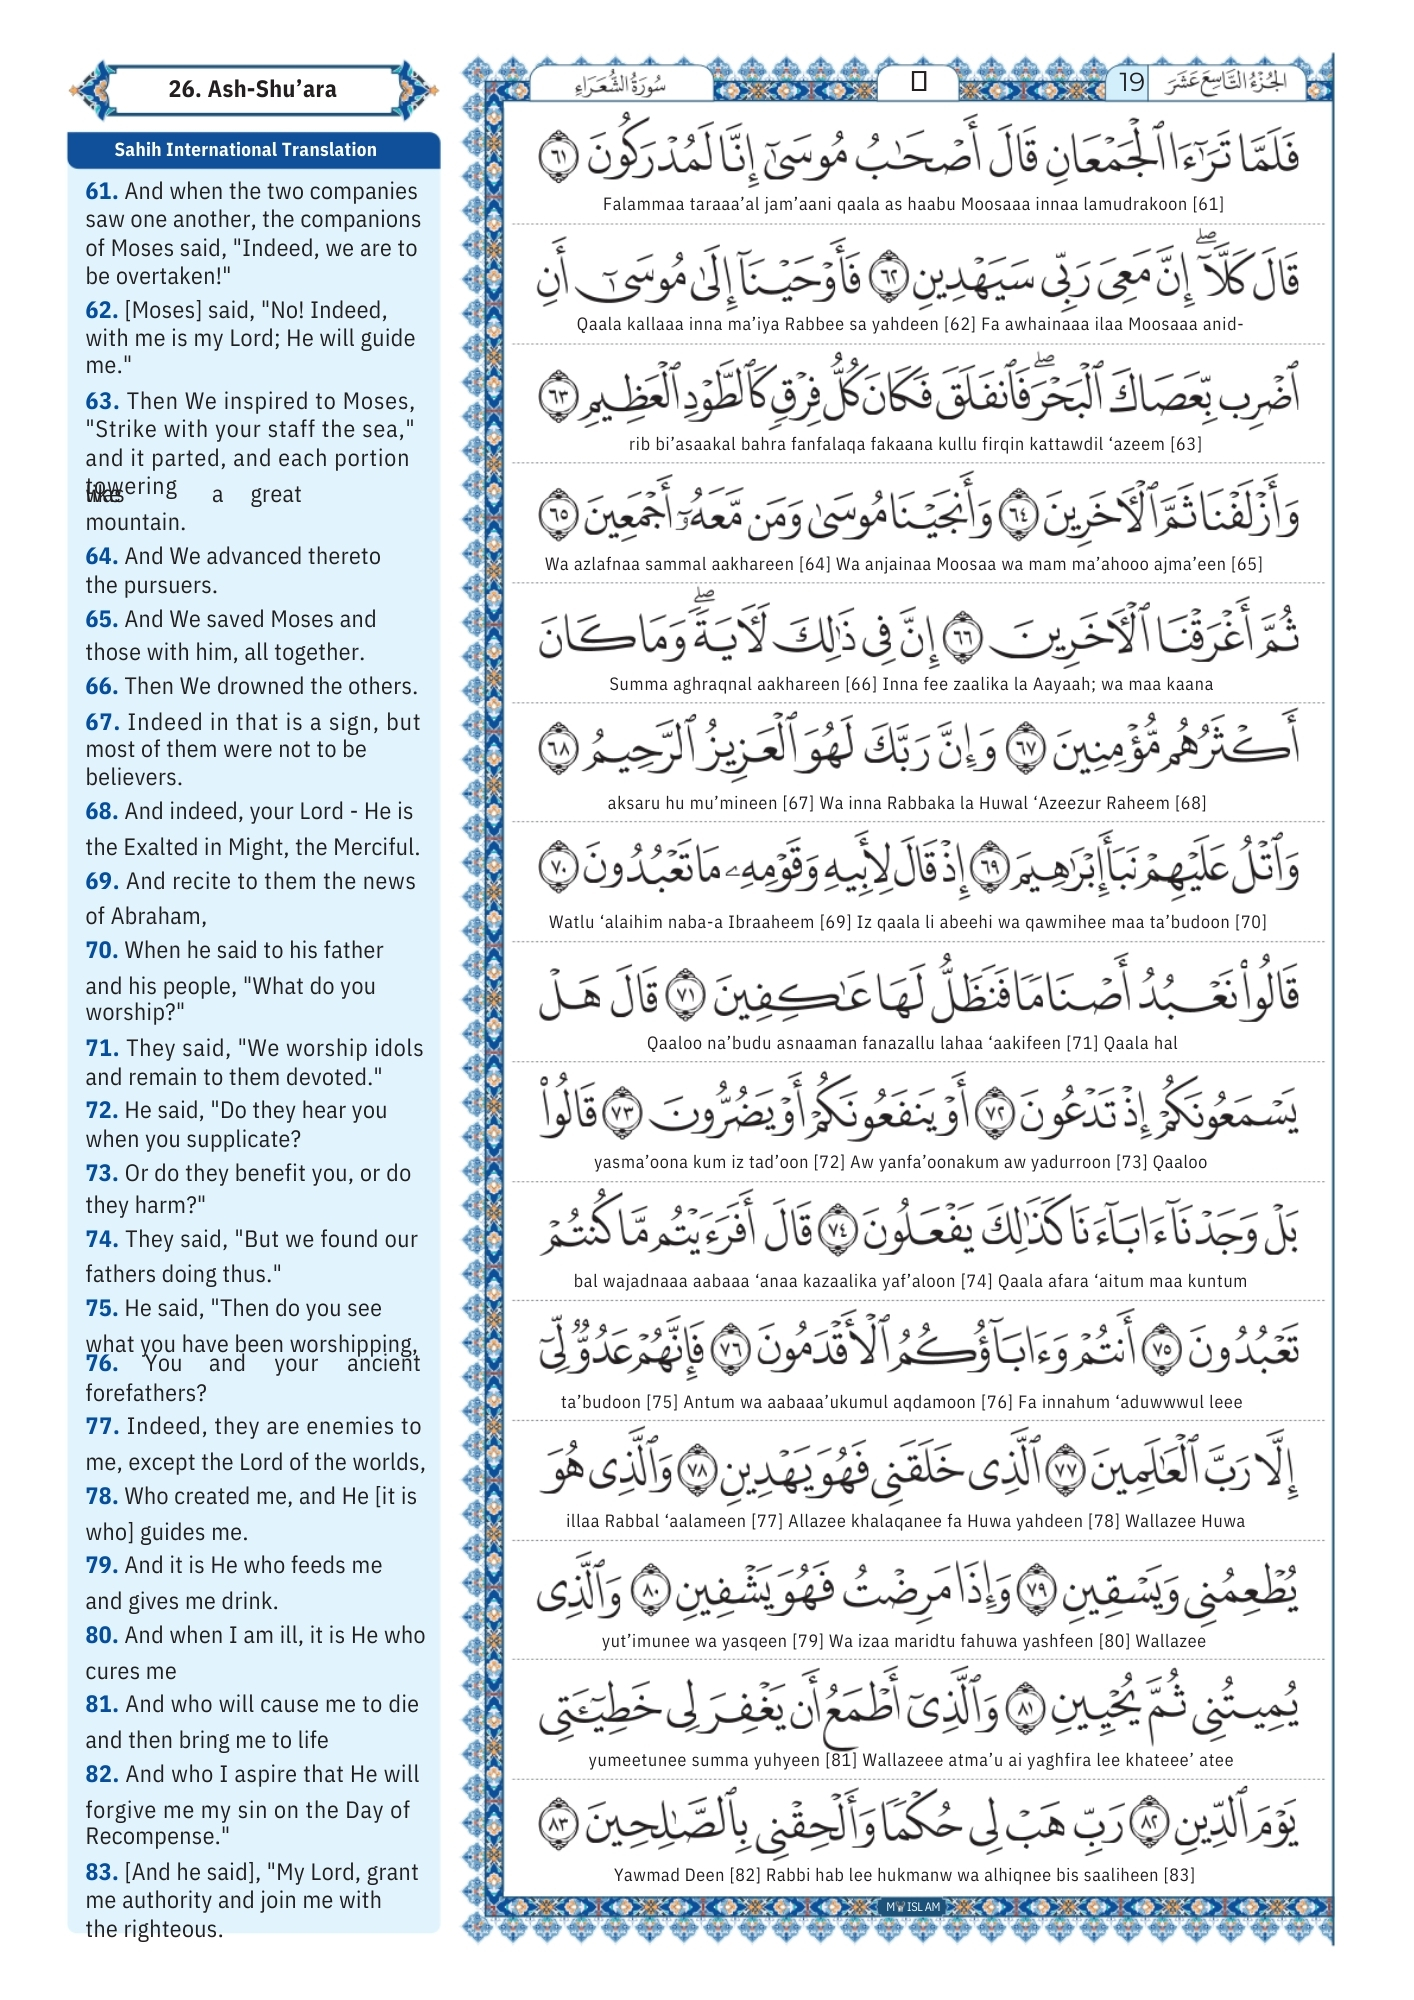 26. Ash-Shu’ara
Sahih International Translation
61. And when the two companies
saw one another, the companions
of Moses said, "Indeed, we are to
be overtaken!"
62. [Moses] said, "No! Indeed,
with me is my Lord; He will guide
me."
63. Then We inspired to Moses,
"Strike with your staff the sea,"
and it parted, and each portion
towering
a great
mountain.
64. And We advanced thereto
the pursuers.
65. And We saved Moses and
those with him, all together.
66. Then We drowned the others.
67. Indeed in that is a sign, but
most of them were not to be
believers.
68. And indeed, your Lord - He is
the Exalted in Might, the Merciful.
69. And recite to them the news
of Abraham,
70. When he said to his father
and his people, "What do you
worship?"
71. They said, "We worship idols
and remain to them devoted."
72. He said, "Do they hear you
when you supplicate?
73. Or do they benefit you, or do
they harm?"
74. They said, "But we found our
fathers doing thus."
75. He said, "Then do you see
what you have been worshipping,
76. You and your ancient
forefathers?
77. Indeed, they are enemies to
me, except the Lord of the worlds,
78. Who created me, and He [it is
who] guides me.
79. And it is He who feeds me
and gives me drink.
80. And when I am ill, it is He who
cures me
81. And who will cause me to die
and then bring me to life
82. And who I aspire that He will
forgive me my sin on the Day of
Recompense."
83. [And he said], "My Lord, grant
me authority and join me with
the righteous.
سُورَةُ الشُّعَرَاءِ
19 الجُزْءُ التَّاسِعَ عَشَرَ
فَلَمَّا تَرَٰٓءَا ٱلْجَمْعَانِ قَالَ أَصْحَٰبُ مُوسَىٰٓ إِنَّا لَمُدْرَكُونَ ٦١
Falammaa taraaa’al jam’aani qaala as haabu Moosaaa innaa lamudrakoon [61]
قَالَ كَلَّآ ۖ إِنَّ مَعِىَ رَبِّى سَيَهْدِينِ ٦٢ فَأَوْحَيْنَآ إِلَىٰ مُوسَىٰٓ أَنِ
Qaala kallaaa inna ma’iya Rabbee sa yahdeen [62] Fa awhainaaa ilaa Moosaaa anid-
ٱضْرِب بِّعَصَاكَ ٱلْبَحْرَ ۖ فَٱنفَلَقَ فَكَانَ كُلُّ فِرْقٍ كَٱلطَّوْدِ ٱلْعَظِيمِ ٦٣
rib bi’asaakal bahra fanfalaqa fakaana kullu firqin kattawdil ‘azeem [63]
وَأَزْلَفْنَا ثَمَّ ٱلْءَاخَرِينَ ٦٤ وَأَنجَيْنَا مُوسَىٰ وَمَن مَّعَهُۥٓ أَجْمَعِينَ ٦٥
Wa azlafnaa sammal aakhareen [64] Wa anjainaa Moosaa wa mam ma’ahooo ajma’een [65]
ثُمَّ أَغْرَقْنَا ٱلْءَاخَرِينَ ٦٦ إِنَّ فِى ذَٰلِكَ لَءَايَةً ۖ وَمَا كَانَ
Summa aghraqnal aakhareen [66] Inna fee zaalika la Aayaah; wa maa kaana
أَكْثَرُهُم مُّؤْمِنِينَ ٦٧ وَإِنَّ رَبَّكَ لَهُوَ ٱلْعَزِيزُ ٱلرَّحِيمُ ٦٨
aksaru hu mu’mineen [67] Wa inna Rabbaka la Huwal ‘Azeezur Raheem [68]
وَٱتْلُ عَلَيْهِمْ نَبَأَ إِبْرَٰهِيمَ ٦٩ إِذْ قَالَ لِأَبِيهِ وَقَوْمِهِۦ مَا تَعْبُدُونَ ٧٠
Watlu ‘alaihim naba-a Ibraaheem [69] Iz qaala li abeehi wa qawmihee maa ta’budoon [70]
قَالُوا۟ نَعْبُدُ أَصْنَامًا فَنَظَلُّ لَهَا عَٰكِفِينَ ٧١ قَالَ هَلْ
Qaaloo na’budu asnaaman fanazallu lahaa ‘aakifeen [71] Qaala hal
يَسْمَعُونَكُمْ إِذْ تَدْعُونَ ٧٢ أَوْ يَنفَعُونَكُمْ أَوْ يَضُرُّونَ ٧٣ قَالُوا۟
yasma’oona kum iz tad’oon [72] Aw yanfa’oonakum aw yadurroon [73] Qaaloo
بَلْ وَجَدْنَآ ءَابَآءَنَا كَذَٰلِكَ يَفْعَلُونَ ٧٤ قَالَ أَفَرَءَيْتُم مَّا كُنتُمْ
bal wajadnaaa aabaaa ‘anaa kazaalika yaf’aloon [74] Qaala afara ‘aitum maa kuntum
تَعْبُدُونَ ٧٥ أَنتُمْ وَءَابَآؤُكُمُ ٱلْأَقْدَمُونَ ٧٦ فَإِنَّهُمْ عَدُوٌّ لِّىٓ
ta’budoon [75] Antum wa aabaaa’ukumul aqdamoon [76] Fa innahum ‘aduwwwul leee
إِلَّا رَبَّ ٱلْعَٰلَمِينَ ٧٧ ٱلَّذِى خَلَقَنِى فَهُوَ يَهْدِينِ ٧٨ وَٱلَّذِى هُوَ
illaa Rabbal ‘aalameen [77] Allazee khalaqanee fa Huwa yahdeen [78] Wallazee Huwa
يُطْعِمُنِى وَيَسْقِينِ ٧٩ وَإِذَا مَرِضْتُ فَهُوَ يَشْفِينِ ٨٠ وَٱلَّذِى
yut’imunee wa yasqeen [79] Wa izaa maridtu fahuwa yashfeen [80] Wallazee
يُمِيتُنِى ثُمَّ يُحْيِينِ ٨١ وَٱلَّذِىٓ أَطْمَعُ أَن يَغْفِرَ لِى خَطِيٓـَٔتِى
yumeetunee summa yuhyeen [81] Wallazeee atma’u ai yaghfira lee khateee’ atee
يَوْمَ ٱلدِّينِ ٨٢ رَبِّ هَبْ لِى حُكْمًا وَأَلْحِقْنِى بِٱلصَّٰلِحِينَ ٨٣
Yawmad Deen [82] Rabbi hab lee hukmanw wa alhiqnee bis saaliheen [83]